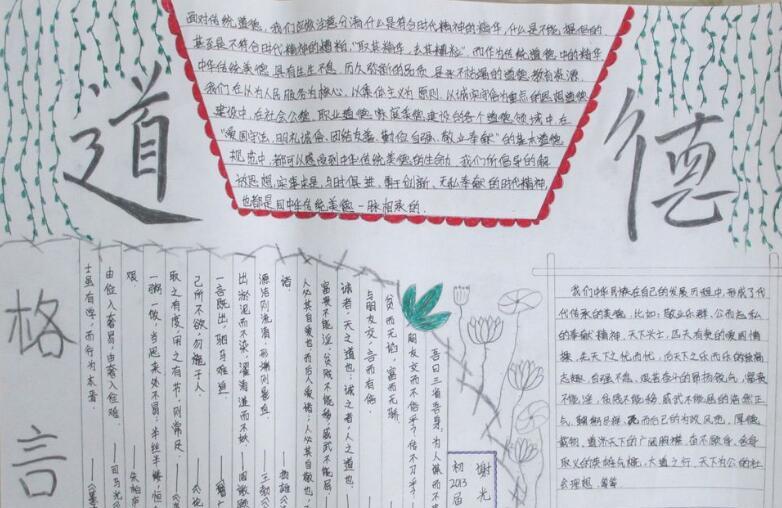 面对传统道德,我们应该注意分清什么是符合时代精神的精华,什么是不能提倡的
甚至是不符合时代精神的糟粕,"取其精华,去其糟粕",而作为传统道德中的精华
中华传统美德,具有生生不息,历久弥新的品质,是永不枯竭的道德教育资源
我们在以为人民服务为核心,以集体主义为原则,以诚实守信为重点的思想道德
建设中,在社会公德,职业道德,家庭美德建设的各个道德领域中,在
"爱国守法,明礼诚信,团结友善,勤俭自强,敬业奉献"的基本道德
规范中,都可以感受到中华传统美德的生命力。我们所倡导的解
放思想,实事求是,与时俱进,勇于创新,无私奉献的时代精神,
也都是同中华传统美德一脉相承的。
道
德
格言
吾日三省吾身,为人谋而不
朋友交而不信乎?传不习乎?
贫而无谄,富而无骄
与朋友交,言而有信
诚者,天之道也;诚之者,人之道也。
富贵不能淫,贫贱不能移,威武不能屈
人必其自爱也而后人爱诸;人必其自敬也,
诸
源洁则流清,形端则影直
出淤泥而不染,濯清涟而不妖
一言既出,驷马难追
己所不欲,勿施于人。
取之有度,用之有节,则常足。
一粥一饭,当思来处不易;半丝半缕,恒
艰
由俭入奢易,由奢入俭难。
——司马光
士虽有学,而行为本焉
初2013届
谢光
我们中华民族在自己的发展历程中,形成了代
代传承的美德,比如,敬业乐群,公而忘私
的奉献精神,天下兴亡,匹夫有责的爱国情
操,先天下之忧而忧,后天下之乐而乐的崇高
志趣,自强不息,艰苦奋斗的昂扬锐气,富贵
不能淫,贫贱不能移,威武不能屈的浩然正
气,鞠躬尽瘁,死而后已的为政风范,厚德
载物,道济天下的广阔胸襟,奋不顾身,舍身
取义的英雄气概,大道之行,天下为公的社
会理想,等等